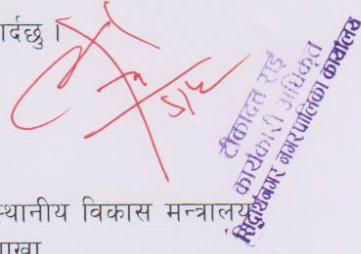 गर्दछु ।
टीकादत्त राई
कार्यकारी अधिकृत
सिद्धार्थनगर नगरपालिका कार्यालय
स्थानीय विकास मन्त्रालय
शाखा